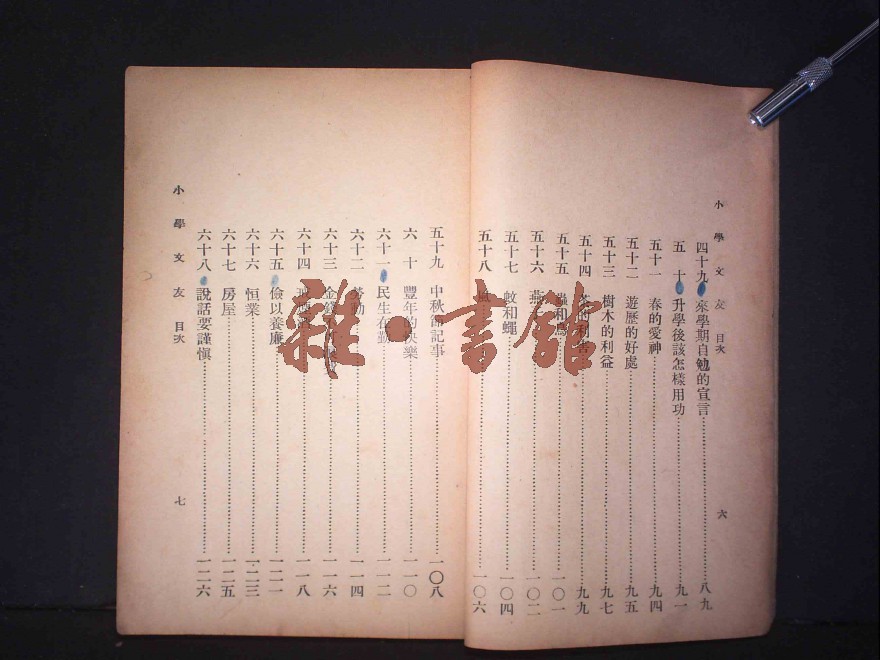 小學文友 目次
六
四十九 來學期自勉的宣言 八九
五十 升學後該怎樣用功 九一
五十一 春的愛神 九四
五十二 遊歷的好處 九五
五十三 樹木的利益 九七
五十四 的利害 九九
五十五 蟲和鳥 一〇一
五十六 燕 一〇二
五十七 蚊和蠅 一〇四
五十八 一〇六
五十九 中秋節記事 一〇八
六十 豐年的快樂 一一〇
六十一 民生在勤 一一二
六十二 勞動 一一四
六十三 金錢 一一六
六十四 一一八
六十五 儉以養廉 一二一
六十六 恒業 一二三
六十七 房屋 一二五
六十八 說話要謹愼 一二六
小學文友 目次
七
雜·書館